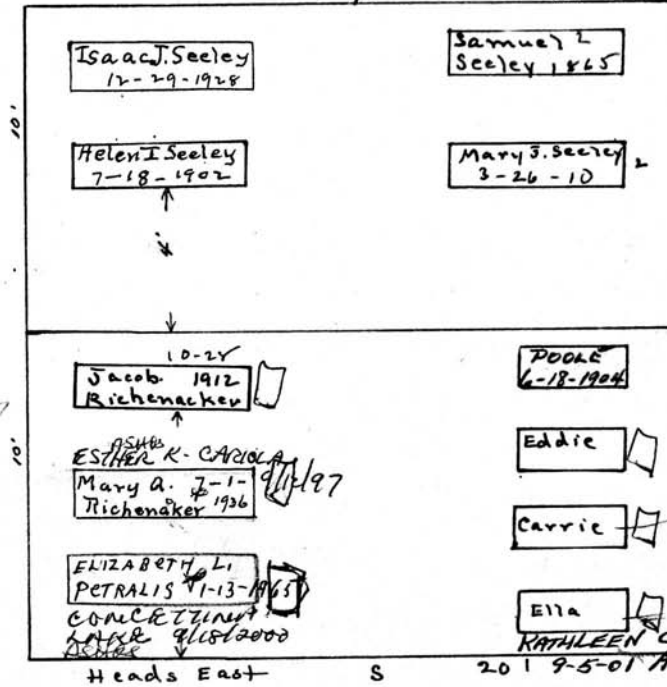 Isaac J. Seeley
12-29-1928
Samuel 2
Seeley 1865
10'
Helen I Seeley
7-18-1902
Mary J. Seeley 2
3-26-10
10-28
Jacob 1912
Richenacker
POOLE
6-18-1904
10'
ASHES
ESTHER K. CARIOLA
9/ /97
Mary A. 7-1-
Richenaker 1936
Eddie
Carrie
ELIZABETH L.
PETRALIS 1-13-1965
CONCETTINA
9/18/2000
ASHES
Ella
KATHLEEN
Heads East
S
20 1 9-5-01